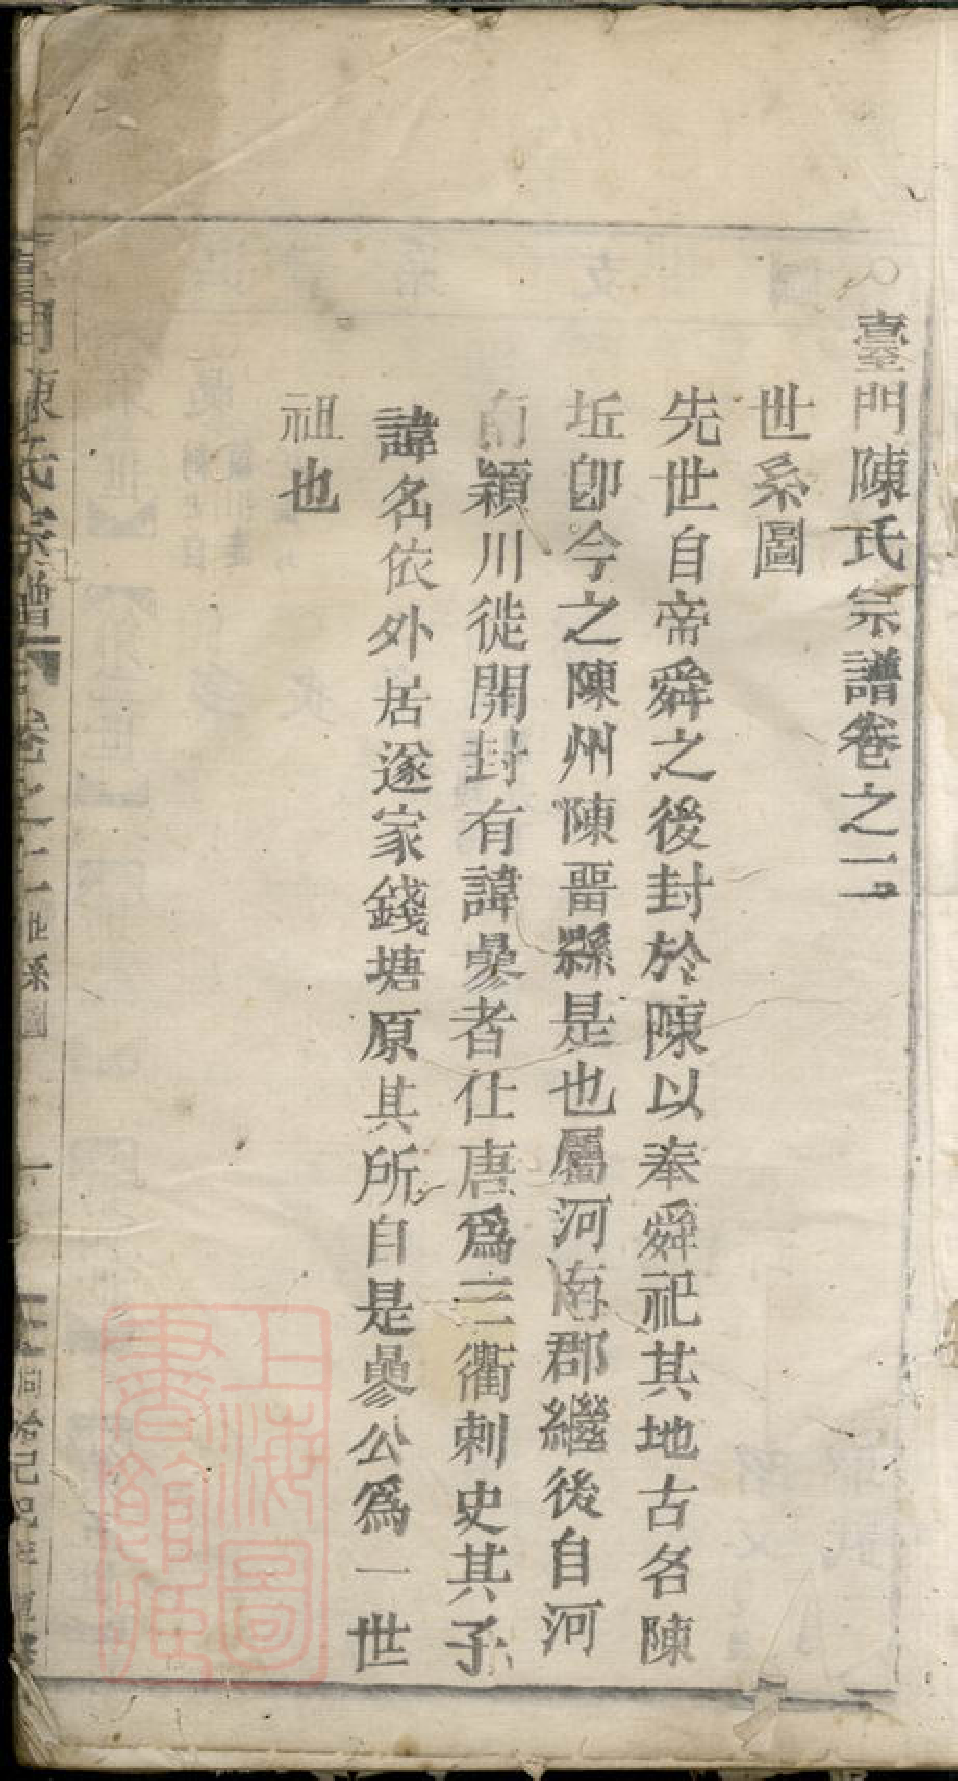 臺門陳氏宗譜卷之二
世系圖
先世自帝舜之後封於陳以奉舜祀其地古名陳
坵卽今之陳州陳畱縣是也屬河南郡繼後自河
南潁川徙開封有諱曑者仕唐爲三衢刺史其子
諱名依外居遂家錢塘原其所自是曑公爲一世
祖也
臺門陳氏宗譜 卷之二 世系圖 一 同治己巳
上海圖書館藏